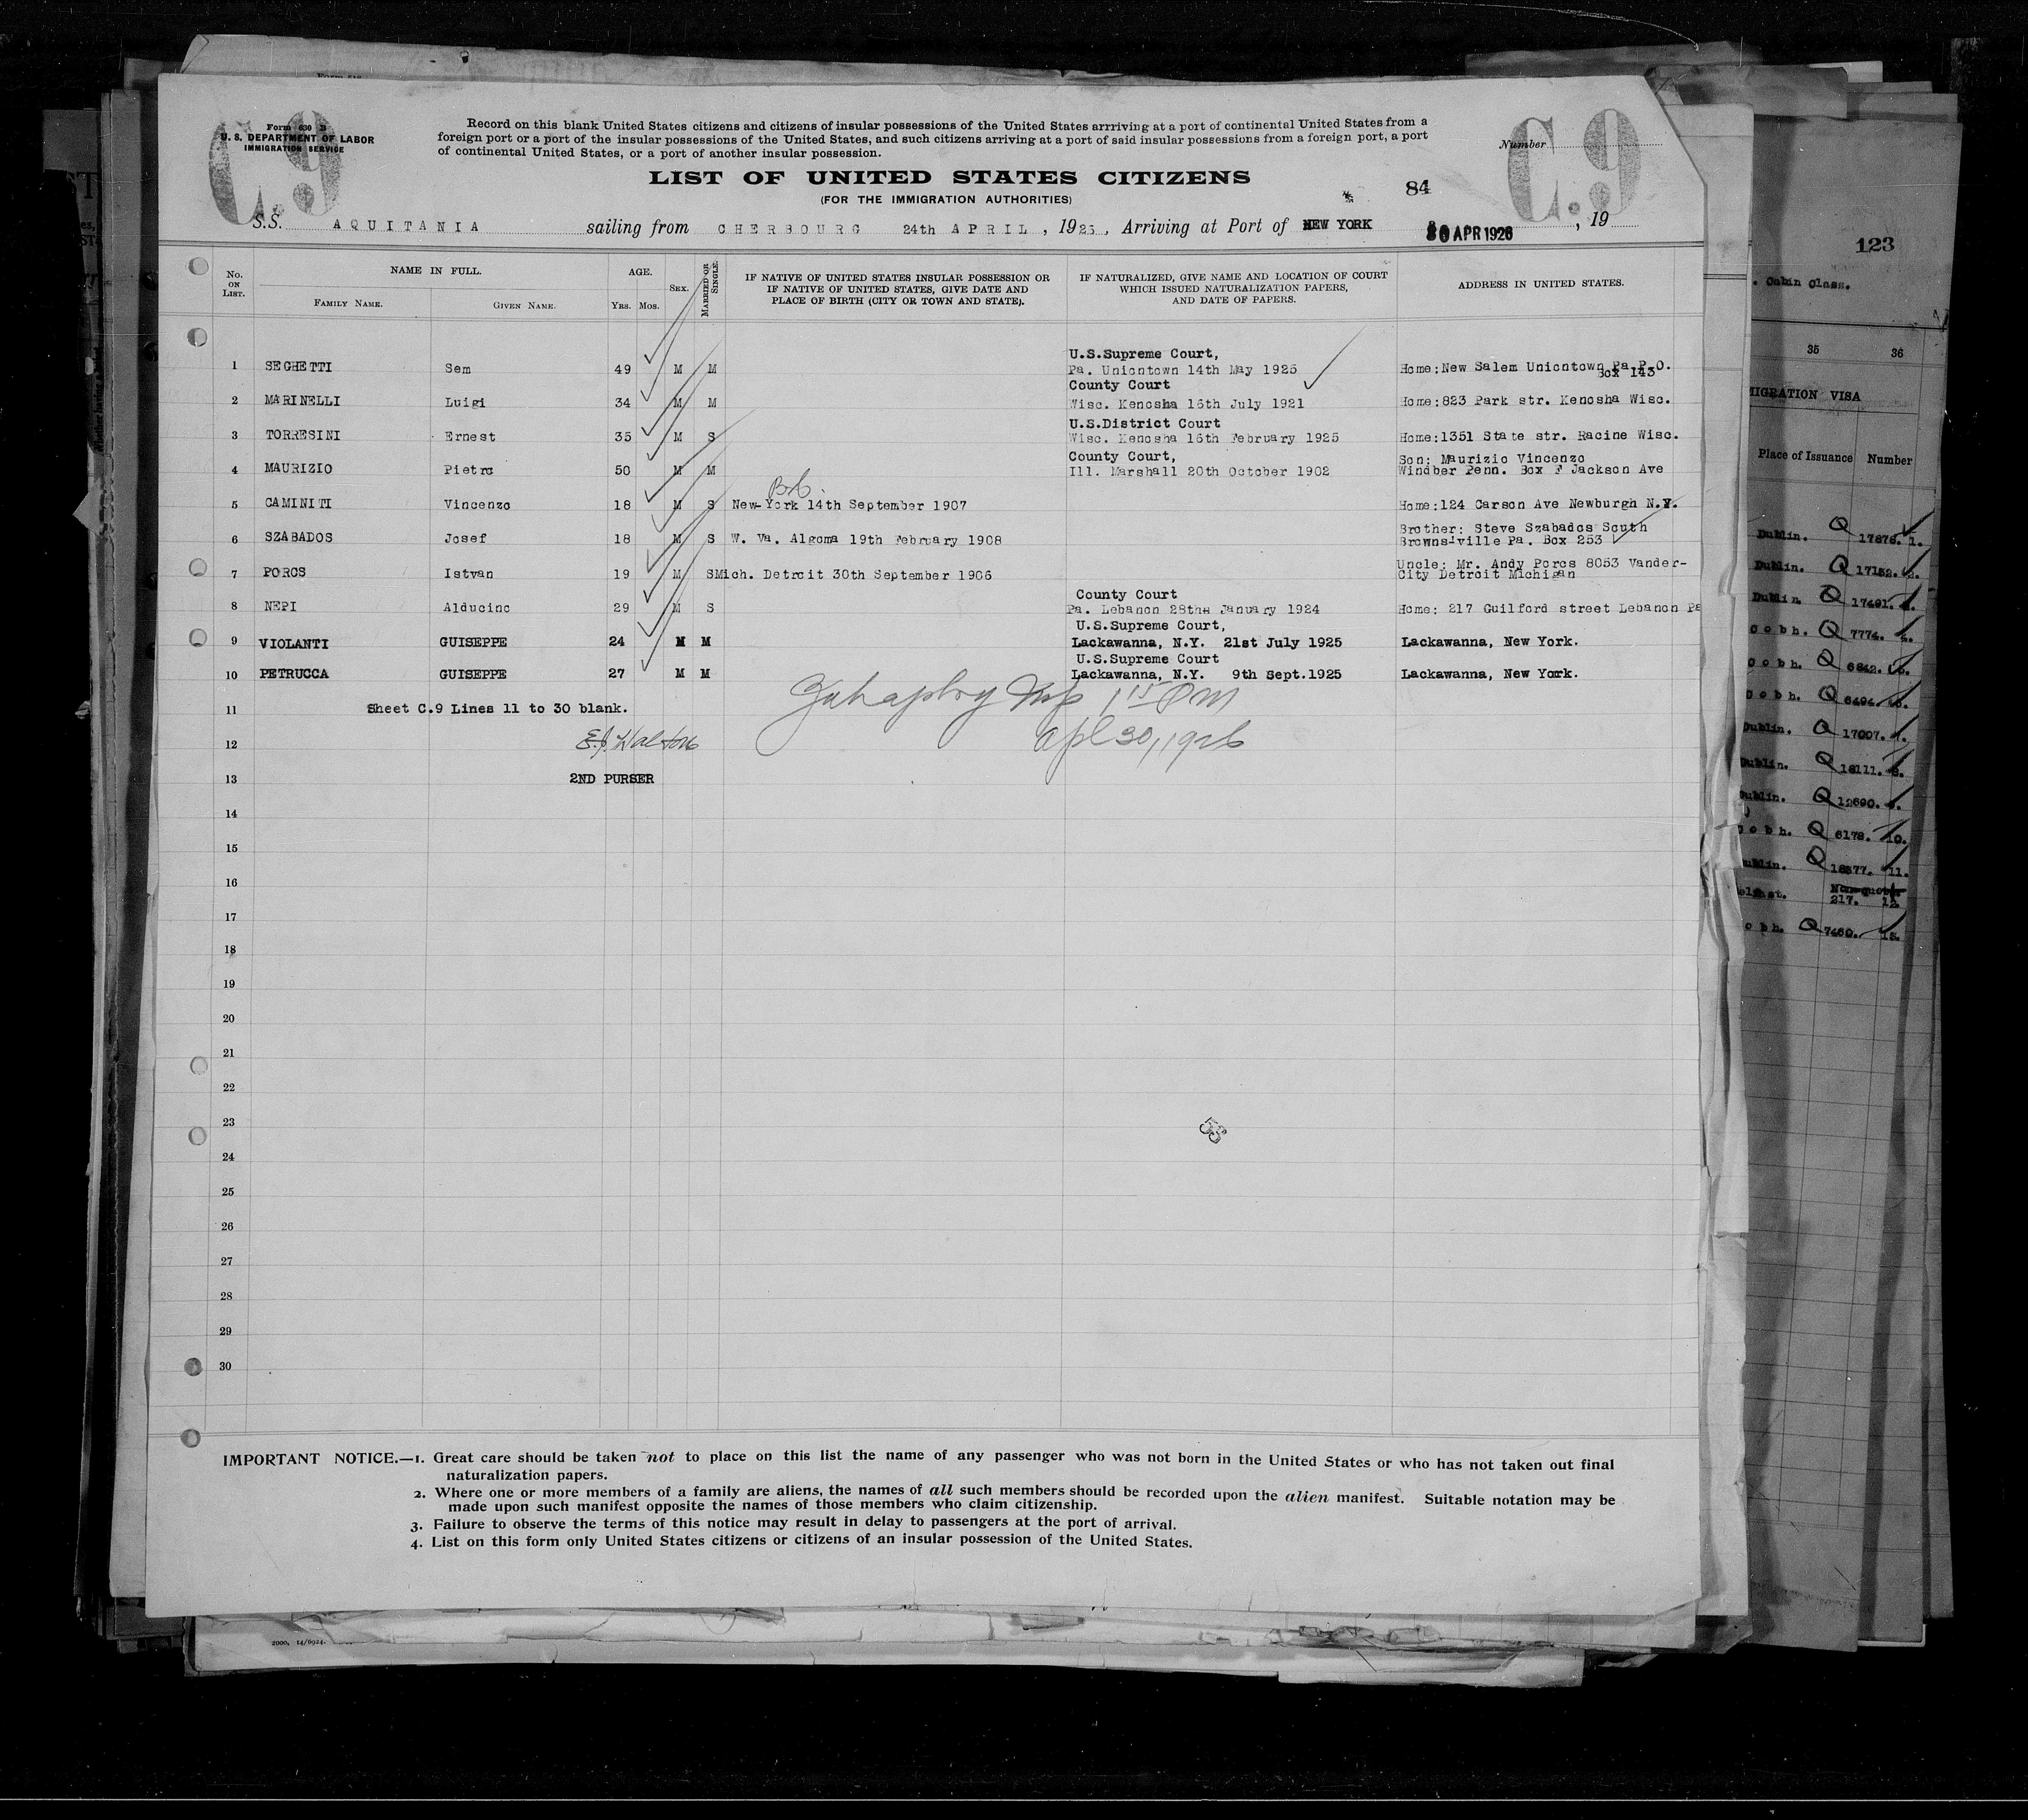 Form 630 B
U. S. DEPARTMENT OF LABOR
IMMIGRATION SERVICE
C.9
Record on this blank United States citizens and citizens of insular possessions of the United States arrriving at a port of continental United States from a
foreign port or a port of the insular possessions of the United States, and such citizens arriving at a port of said insular possessions from a foreign port, a port
of continental United States, or a port of another insular possession.
Number
C.9
LIST OF UNITED STATES CITIZENS
(FOR THE IMMIGRATION AUTHORITIES)
84
S.S. AQUITANIA sailing from CHERBOURG 24th APRIL, 1926, Arriving at Port of NEW YORK 30 APR 1926, 19
No. ON LIST.
NAME IN FULL.
FAMILY NAME. GIVEN NAME.
AGE.
YRS. MOS.
SEX.
MARRIED OR SINGLE.
IF NATIVE OF UNITED STATES INSULAR POSSESSION OR
IF NATIVE OF UNITED STATES, GIVE DATE AND
PLACE OF BIRTH (CITY OR TOWN AND STATE).
IF NATURALIZED, GIVE NAME AND LOCATION OF COURT
WHICH ISSUED NATURALIZATION PAPERS,
AND DATE OF PAPERS.
ADDRESS IN UNITED STATES.
U.S.Supreme Court,
1 SEGHETTI Sem 49 M M Pa. Uniontown 14th May 1925 Home:New Salem Uniontown Pa P.O.
Box 143
County Court
2 MARINELLI Luigi 34 M M Wisc. Kenosha 15th July 1921 Home:823 Park str. Kenosha Wisc.
U.S.District Court
3 TORRESINI Ernest 35 M S Wisc. Kenosha 16th February 1925 Home:1351 State str. Racine Wisc.
County Court, Son: Maurizio Vincenzo
4 MAURIZIO Pietro 50 M M Ill. Marshall 20th October 1902 Windber Penn. Box F Jackson Ave
5 CAMINITI Vincenzo 18 M S New-York 14th September 1907 Home:124 Carson Ave Newburgh N.Y.
Brother: Steve Szabados South
6 SZABADOS Josef 18 M S W. Va. Algoma 19th February 1908 Browns-ville Pa. Box 253
Uncle: Mr. Andy Porcs 8053 Vander-
7 PORCS Istvan 19 M S Mich. Detroit 30th September 1906 City Detroit Michigan
County Court
8 NEPI Alducinc 29 M S Pa. Lebanon 28th January 1924 Home: 217 Guilford street Lebanon Pa
U.S.Supreme Court,
9 VIOLANTI GUISEPPE 24 M M Lackawanna, N.Y. 21st July 1925 Lackawanna, New York.
U.S.Supreme Court
10 PETRUCCA GUISEPPE 27 M M Lackawanna, N.Y. 9th Sept.1925 Lackawanna, New York.
11 Sheet C.9 Lines 11 to 30 blank.
1 15 PM
12 E.J. Walton Apl 30, 1926
13 2ND PURSER
14
15
16
17
18
19
20
21
22
23
24
25
26
27
28
29
30
IMPORTANT NOTICE.—1. Great care should be taken not to place on this list the name of any passenger who was not born in the United States or who has not taken out final
naturalization papers.
2. Where one or more members of a family are aliens, the names of all such members should be recorded upon the alien manifest. Suitable notation may be
made upon such manifest opposite the names of those members who claim citizenship.
3. Failure to observe the terms of this notice may result in delay to passengers at the port of arrival.
4. List on this form only United States citizens or citizens of an insular possession of the United States.
2000, 14/6924.
123
Cabin Class.
35 36
IMMIGRATION VISA
Place of Issuance Number
Dublin. Q 17878. 1.
Dublin. Q 17152. 2.
Dublin. Q 17491.
Cobh. Q 7774. 4.
Cobh. Q 6842. 5.
Cobh. Q 6494. 6.
Dublin. Q 17007. 7.
Dublin. Q 16111. 8.
Dublin. Q 12690. 9.
Cobh. Q 6178. 10.
Dublin. Q 18577. 11.
Non-quota
217. 12.
Cobh. Q 7460. 13.